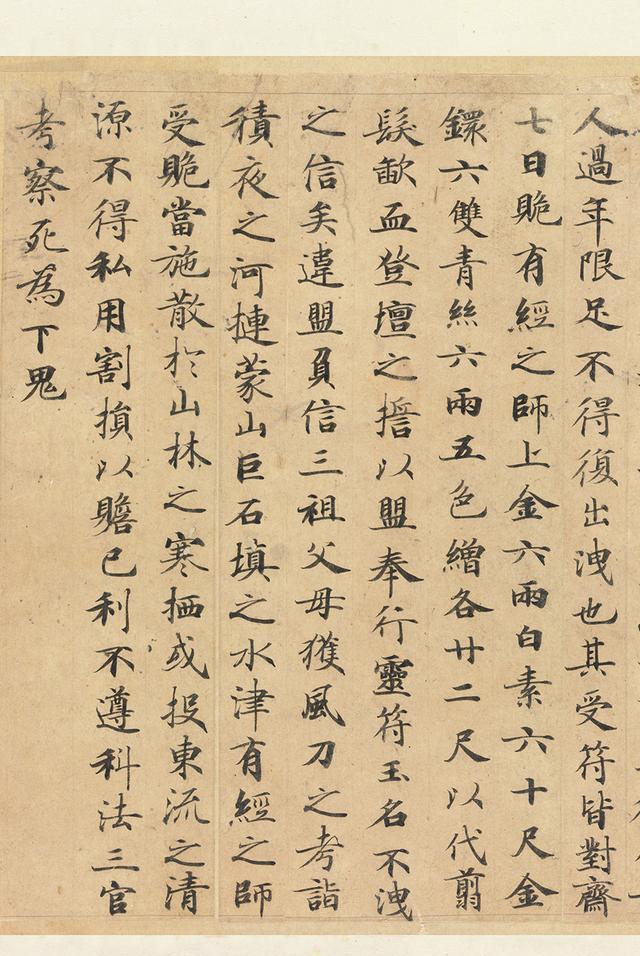 人過年限足不得復出洩也其受符皆對齋
七日賝有經之師上金六兩白素六十尺金
鐶六雙青絲六兩五色繒各廿二尺以代翦
髮歃血登壇之擔以盟奉行靈符玉名不洩
之信矣違盟負信三祖父母獲風刀之考詣
積夜之河摙蒙山巨石填之水津有經之師
受賝當施散於山林之寒栖或投東流之清
源不得私用割損以贍己利不遵科法三官
考察死為下鬼